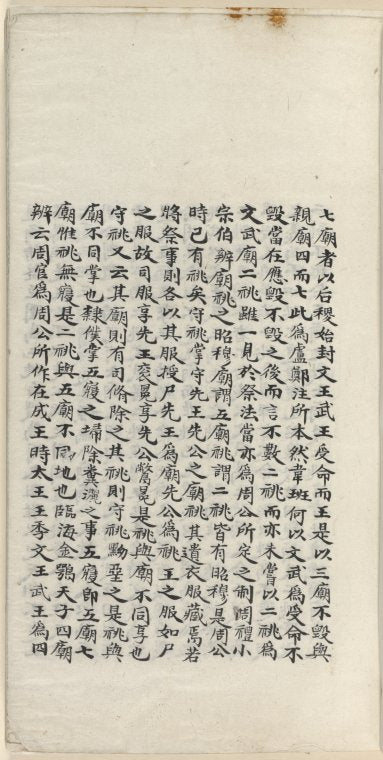 七廟者以后稷始封文王武王受命而王是以三廟不毀與
親廟四而七此為盧鄭注所本然韋班何以文武為受命不
毀當在應毀不毀之後而言不數二祧而亦未嘗以二祧為
文武廟二祧雖一見於祭法當亦為周公所定之制周禮小
宗伯辨廟祧之昭穆廟謂五廟祧謂二祧皆有昭穆是周公
時已有祧矣守祧掌守先王先公之廟祧其遺衣服藏焉若
將祭事則各以其服授尸先王為廟先公為祧王之服如尸
之服故司服享先王袞冕享先公鷩冕是祧與廟不同享也
守祧又云其廟則有司脩除之其祧則守祧黝堊之是祧與
廟不同掌也隸僕掌五寢之埽除糞灑之事五寢即五廟七
廟惟祧無寢是二祧與五廟不同地也臨海金鶚天子四廟
辨云周官為周公所作在成王時太王王季文王武王為四